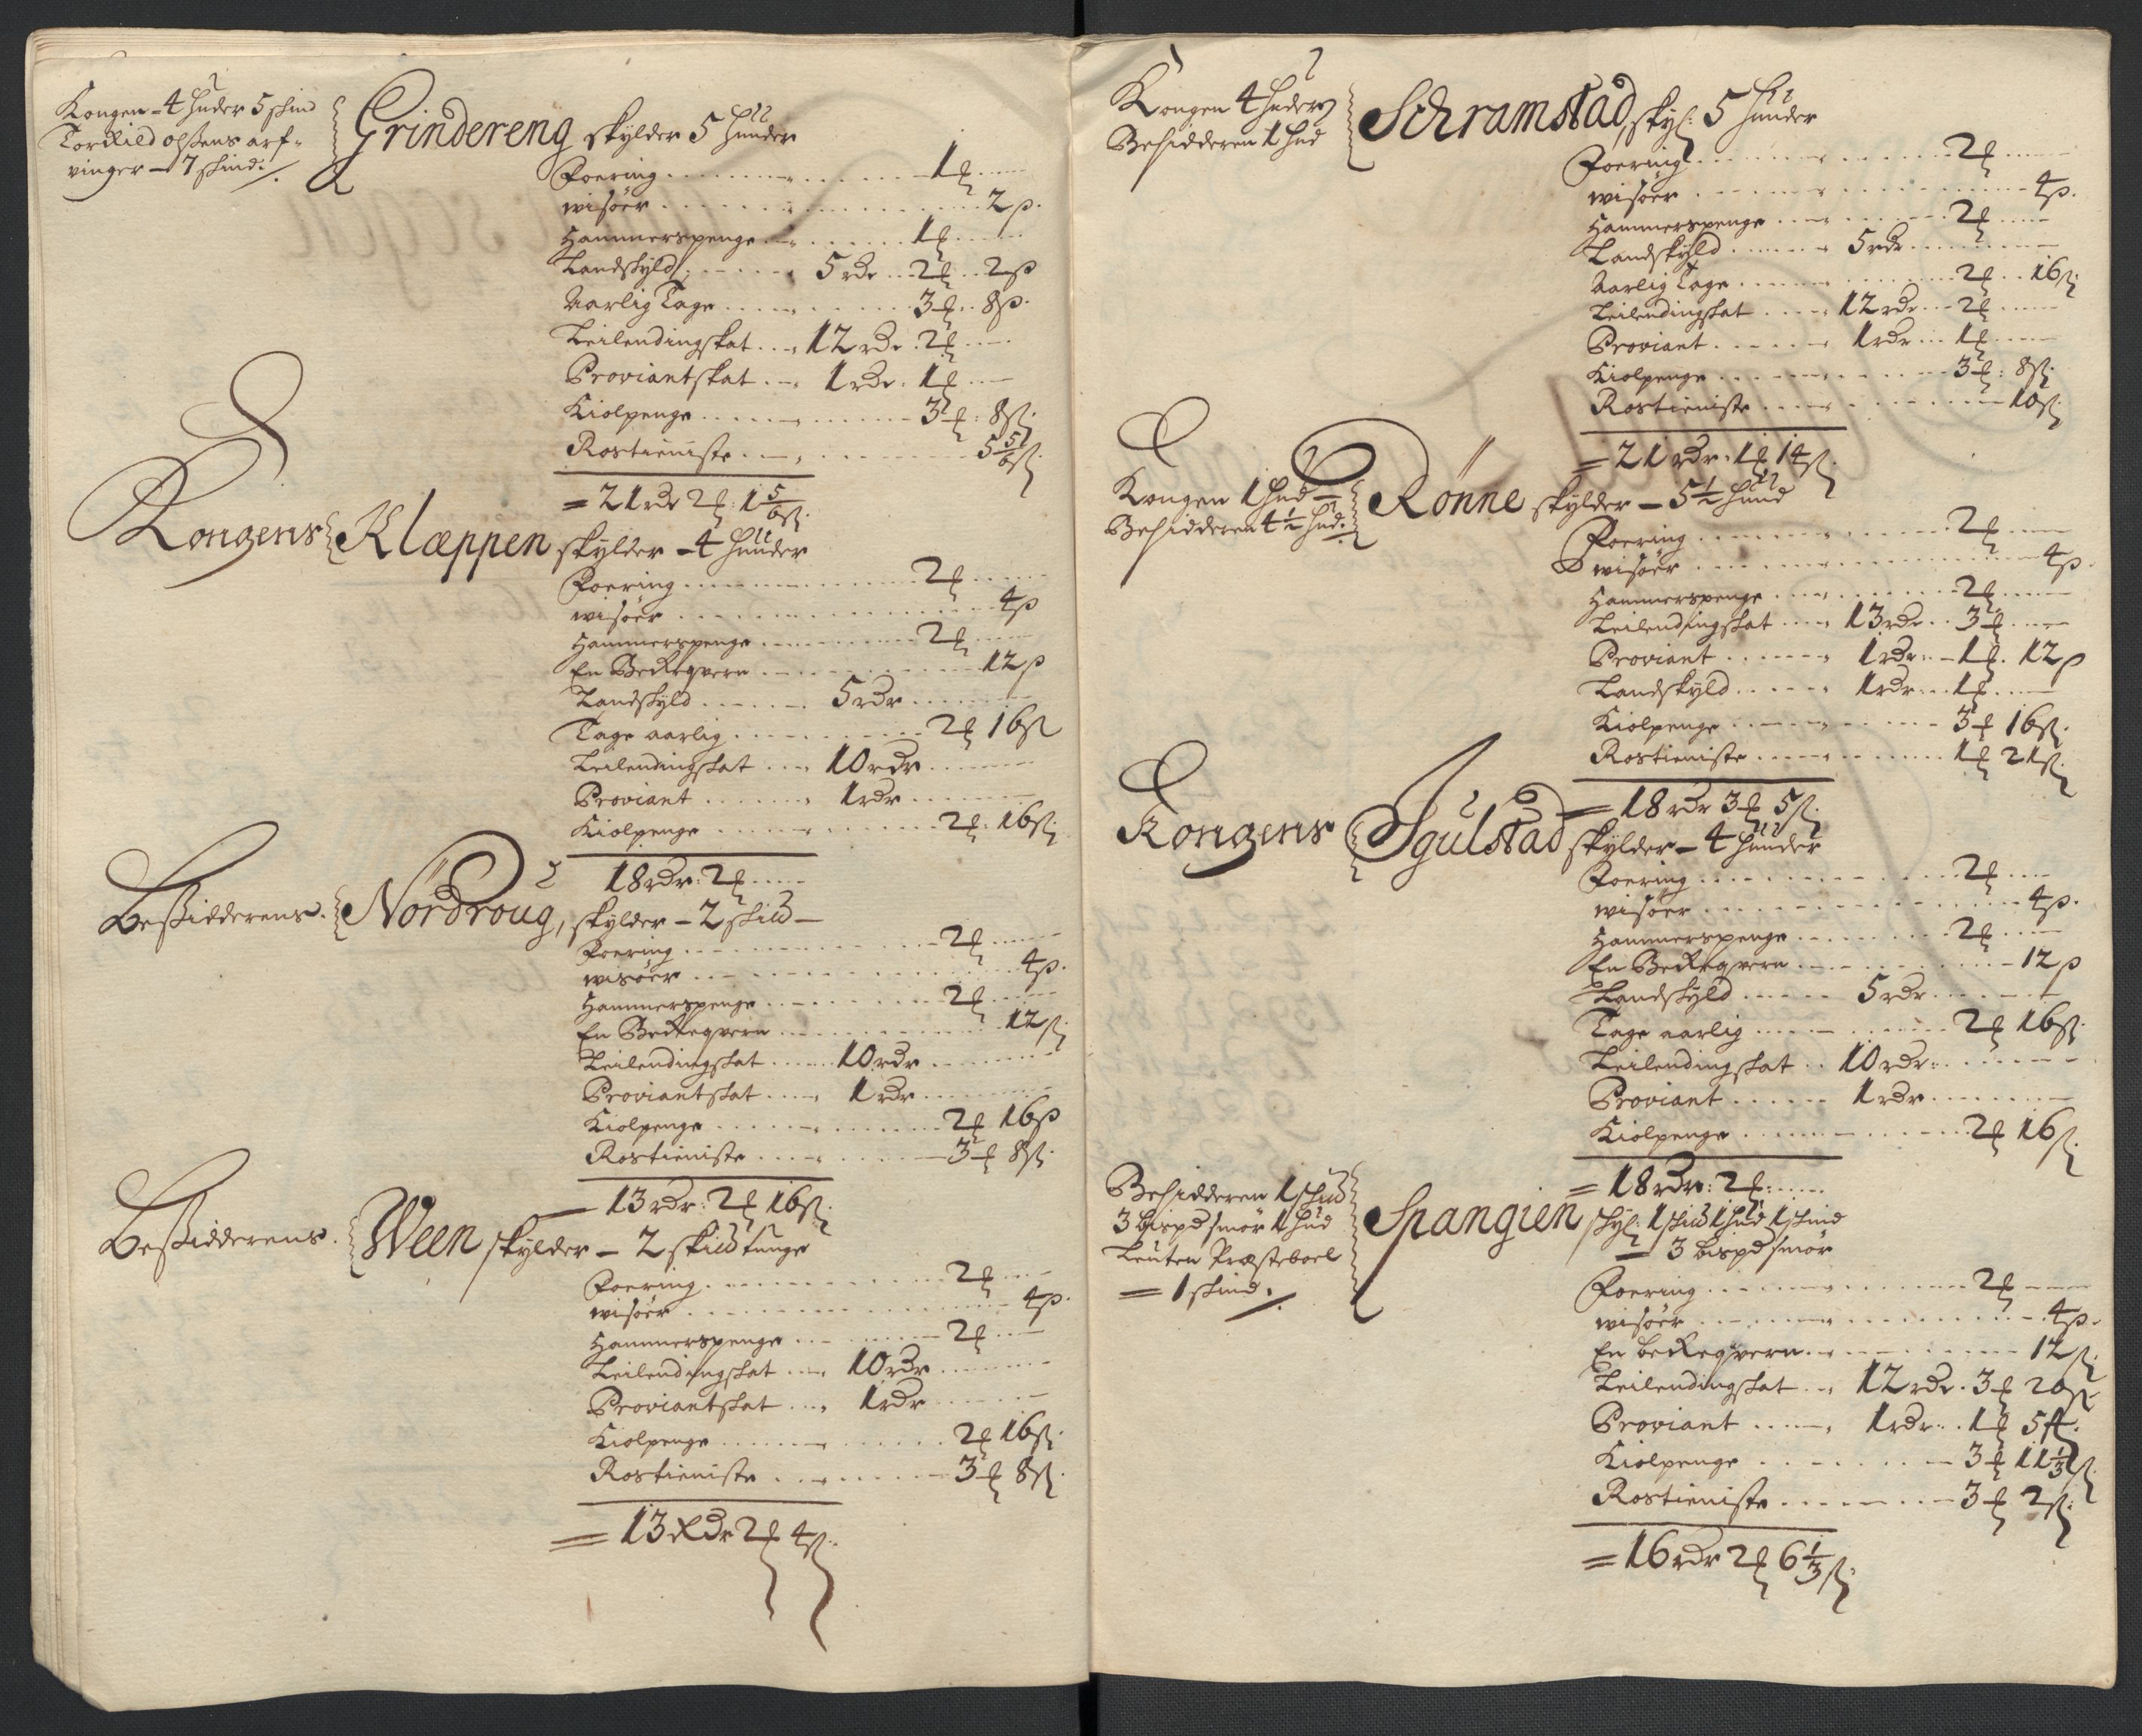 Kongen - 4 huder 5 skind
Torkild olssens arf-
vinger - 7 skind:
Grindereng skylder 5 hunder
Foering 1
wisøer 2 ß.
Hammerspenge 1
Landskyld 5 rdr 2 2 ß
Aarlig Tage 3 8 ß.
Leilendingskat 12 rdr. 2
Proviantskat 1 rdr. 1
Kiolpenge 3 8 ß.
Rostieniste 5 5/6 ß.
= 21 rdr 2 1 5/6 ß.
Kongens Klæppen skylder - 4 hunder
Foering 2
wisøer 4 ß
Hammerspenge 2
En Beckeqvern 12 ß
Landskyld 5 rdr
Tage aarlig 2 16 ß
Leilendingskat 10 rdr
Proviant 1 rdr
Kiolpenge 2 16 ß.
18 rdr: 2
Bessidderens. Nordroug, skylder - 2 skind
Foering 2
wisøer 4 ß.
Hammerspenge 2
En Beckeqvern 12 ß.
Leilendingskat 10 rdr
Proviantskat 1 rdr
Kiolpenge 2 16 ß
Rostieniste 3 8 ß.
13 rdr: 2 16 ß.
Bessidderens. Ween skylder - 2 skind tunge
Foering 2
wisøer 4 ß.
Hammerspenge 2
Leilendingskat 10 rdr
Proviantskat 1 rdr
Kiolpenge 2 16 ß.
Rostieniste 3 8 ß.
= 13 Rdr 2 4 ß.
Kongen 4 huder
Besidderen 1 hud
Schramstad, skyl: 5 hunder
Foering 2
wisøer 4 ß.
Hammerspenge 2
Landskyld 5 rdr
Aarlig Tage 2 16 ß:
Leilendingskat 12 rdr 2
Proviant 1 rdr 1
Kiolpenge 3 8 ß.
Rostieniste 10 ß.
= 21 rdr. 1 14 ß.
Kongen 1 hud
Besidderen 4 1/2 hud.
Rönne skylder - 5 1/2 hund
Foering 2
wisøer 4 ß.
Hammerspenge 2
Leilendingskat 13 rdr. 3
Proviant 1 rdr. 1 12 ß
Landskyld 1 rdr. 1
Kiolpenge 3 16 ß.
Rostieniste 1 21 ß.
= 18 rdr 3 5 ß.
Kongens Igulstad skylder - 4 hunder
Foering 2
wisøer 4 ß.
Hammerspenge 2
En Beckeqvern 12 ß
Landskyld 5 rdr
Tage aarlig 2 16 ß.
Leilendingskat 10 rdr.
Proviant 1 rdr
Kiolpenge 2 16 ß.
= 18 rdr: 2
Besidderen 1 skind
3 bispd smör 1 hud
Leuten Præsteboel
= 1 skind.
Spangien skyl: 1 skind 1 hud 1 skind
3 bispd smör
Foering 2
wisøer 4 ß.
En beckeqvern 12 ß.
Leilendingskat 12 rdr. 3 20 ß.
Proviant 1 rdr. 1 5 ß.
Kiolpenge 3 11 1/3 ß.
Rostieniste 3 2 ß.
= 16 rdr 2 6 1/3 ß.